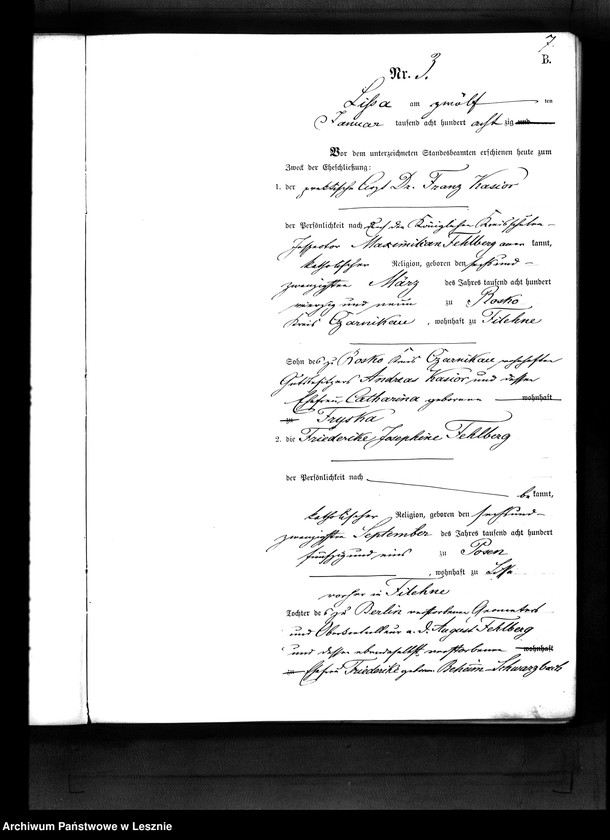 7.
B.
Nr. 3.
Lissa am zwölf ten
Januar tausend acht hundert acht zig und
Vor dem unterzeichneten Standesbeamten erschienen heute zum
Zweck der Eheschließung:
1. der praktische Arzt Dr. Franz Kasior
der Persönlichkeit nach durch den Königlichen Kreisschulen-
Inspector Maximilian Fehlberg aner kannt,
katholischer Religion, geboren den sechsund-
zwanzigsten März des Jahres tausend acht hundert
vierzig und neun zu Rosko
Kreis Czarnikau, wohnhaft zu Filehne
Sohn des zu Rosko Kreis Czarnikau wohnhaften
Gutsbesitzers Andreas Kasior und dessen
Ehefrau Catharina geborene wohnhaft
zu Fryska
2. die Friederike Josephine Fehlberg
der Persönlichkeit nach
be kannt,
katholischer Religion, geboren den sechsund-
zwanzigsten September des Jahres tausend acht hundert
fünfzig und eins zu Posen
, wohnhaft zu Lissa
vorher in Filehne
Tochter des zu Berlin verstorbenen Geometers
und Oberkontrolleur a. D. August Fehlberg
und dessen ebendaselbst verstorbenen wohnhaft
zu Ehefrau Friederike geboren Beheim-Schwarzbach
Archiwum Państwowe w Lesznie